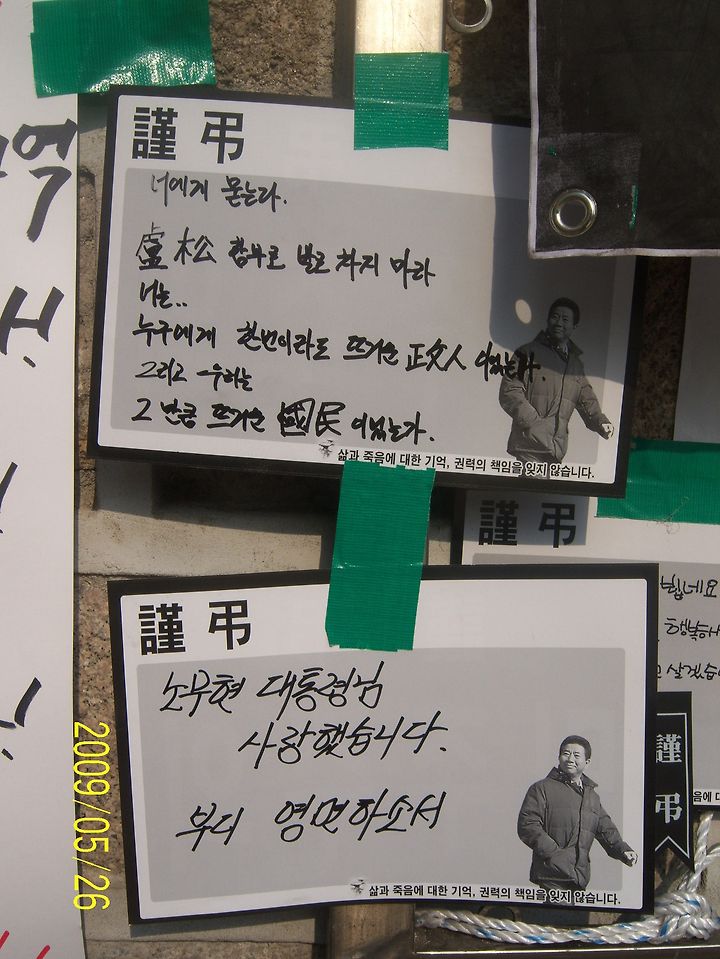 謹 弔
너에게 묻는다.
盧松 함부로 발로 차지 마라
너는..
누구에게 한번이라도 뜨거운 正文人 이었는가.
그리고 우리는
그 만큼 뜨거운 國民 이었는가.
삶과 죽음에 대한 기억, 권력의 책임을 잊지 않습니다.
謹 弔
노무현 대통령님
사랑했습니다.
부디 영면하소서
삶과 죽음에 대한 기억, 권력의 책임을 잊지 않습니다.
謹 弔
빕네요
행복해
살겠습
謹 弔
음에 대
억
2009/05/26